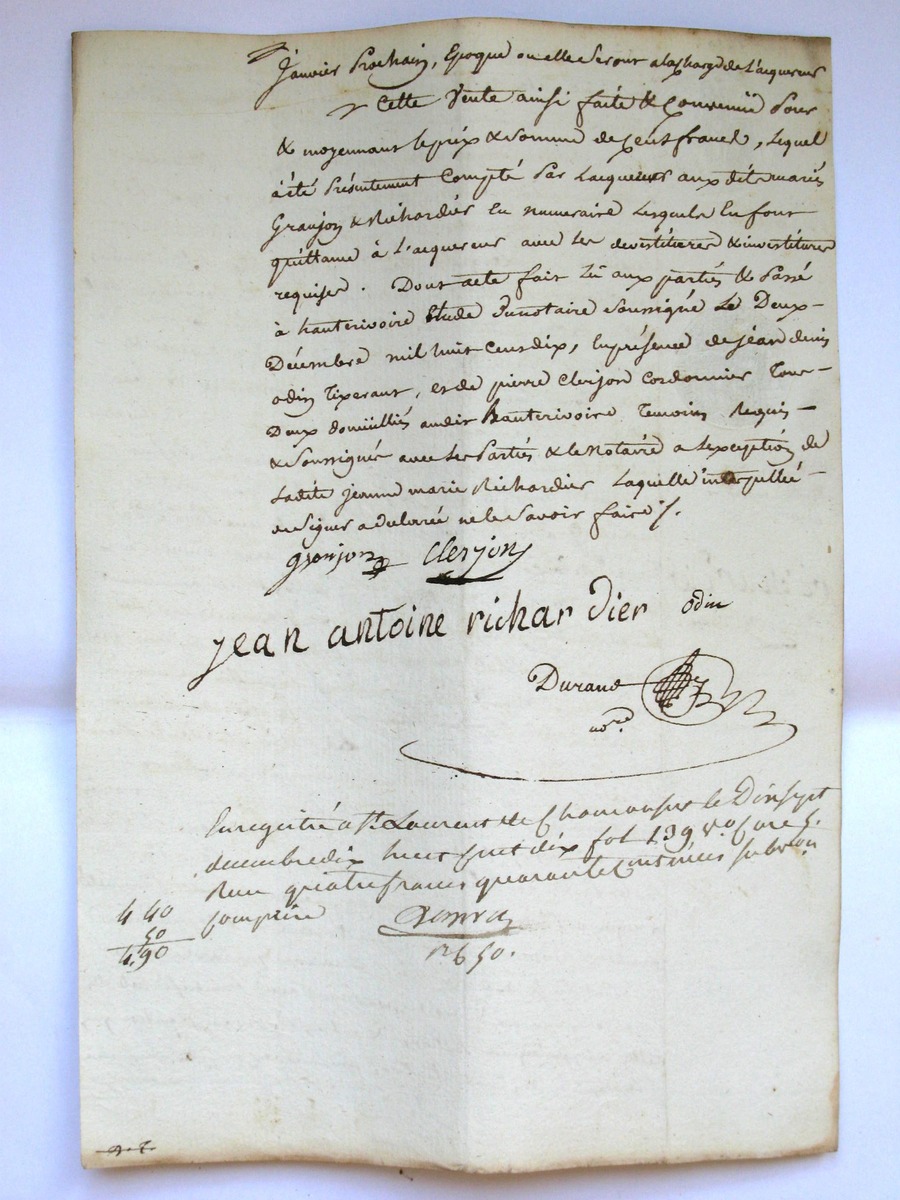 Janvier Prochain, Epoque ou elle Seront a la charge de L'acquereur
Cette Vente ainsi faite & Convenuë Pour
& moyennant le prix & Somme de Cent francs, Lequel
à été Présentement Compté Par L'acquereur aux dits mariés
Granjon & Richardier En numeraire Lesquels En font
quittance à L'acquereur avec Les devestitures & investitures
requises. Dont acte fait Lû aux parties & Passé
à hauterivoire Etude du notaire Soussigné Le Deux
Décembre mil huit Cent dix, En présence de jean denis
odin Tixerant, et de pierre Clerjon Cordonnier Tous
Deux domicilliés audit hauterivoire Temoins Requis
& Soussignés avec Les Parties & le Notaire a L'exception de
Ladite jeanne marie Richardier Laquelle interpellée
de Signer a declarée ne le Savoir faire /.
granjon Clerjon
jean antoine richardier odin
Durand
nore
Enregistré a St. Laurent de Chamousset le Dix sept
decembre dix huit cent dix fol 139 vo. Case 5.
Reçu quatre francs quarante centimes subvon
comprise
4 40
50
4.90
6 50.